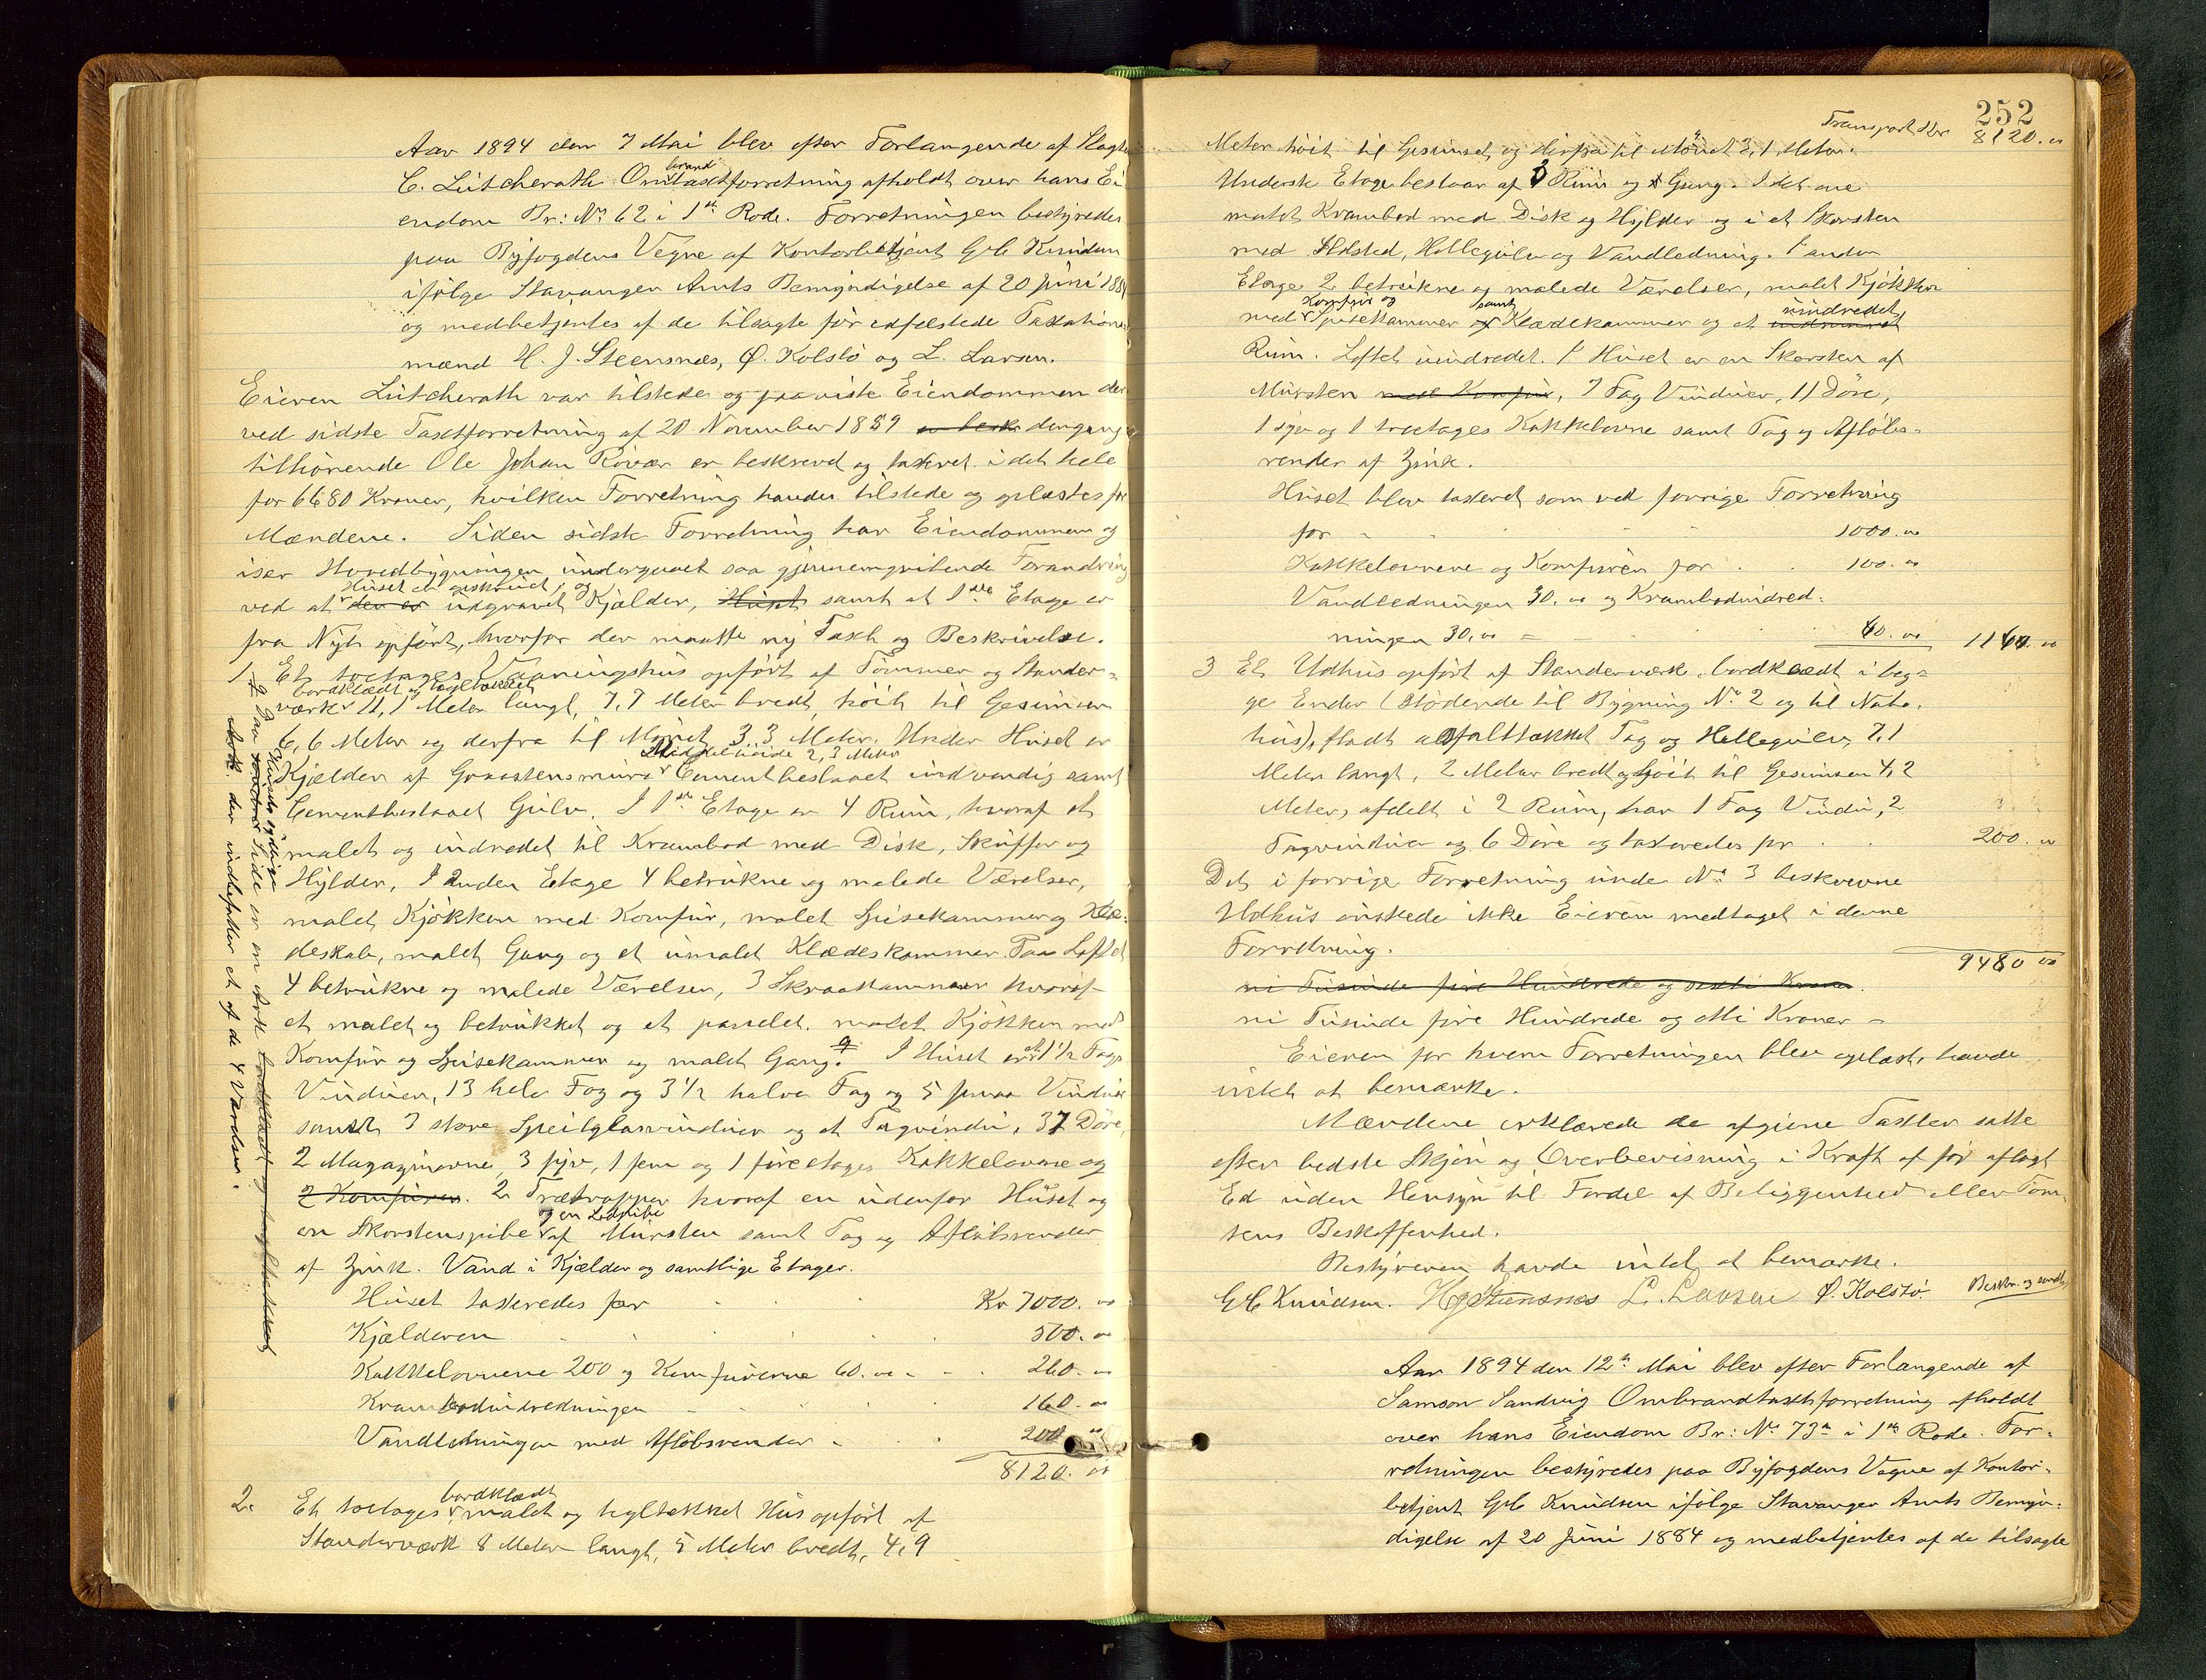 Aar 1894 den 7 Mai blev efter Forlangende af Slagter
C. Lütcherath Ombrandtaxtforretning afholdt over hans Ei
endom Br: No 62 i 1ste Rode. Forretningen bestyredes
paa Byfogdens Vegne af Kontorbetjent Gb Knudsen
ifølge Stavanger Amts Bemyndigelse af 20 Juni 1884
og medbetjentes af de tilsagte før edfæstede Taxations
mænd H. J. Steensnæs, Ø. Kolstø og L. Larsen.
Eieren Lütcherath var tilstede og paaviste Eiendommen der
ved sidste Taxtforretning af 20 November 1889 dengang
tilhørende Ole Johan Røvær er beskrevet og taxeret i det hele
for 6680 Kroner, hvilken Forretning havdes tilstede og oplæstes for
Mændene. Siden sidste Forretning har Eiendommen og
især Hovedbygningen undergaaet saa gjennemgribende Forandring
ved at Huset er opskruet, og udgravet Kjælder, Huset samt at 1ste Etage er
fra Nyt opført, hvorfor der maatte ny Taxt og Beskrivelse.
1. Et toetages Vaaningshus opført af Tømmer og Stander-
værk bordklædt og tagltækket 11,1 Meter langt, 7,7 Meter bredt, høit til Gesimsen
6,6 Meter og derfra til Mønet 3,3 Meter. Under Huset er
Kjælder af Graastensmure Middelhøide 2,3 Meter Cementbeslaaet indvendig samt
Cementbeslaaet Gulv. I 1ste Etage er 4 Rum, hvoraf et
malet og indredet til Krambod med Disk, Skuffer og
Hylder, I anden Etage 4 betrukne og malede Værelser,
malet Kjøkken med Komfur, malet Spisekammer og Klæ-
deskab, malet Gang og et umalet Klædeskammer. Paa Loftet
4 betrukne og malede Værelser, 3 Skraakammer hvoraf
et malet og betrukket og et panelet. malet Kjøkken med
Komfur og Spisekammer og malet Gang. I Huset er 1½ Fags
Vinduer, 13 hele Fag og 3½ halve Fag og 5 smaa Vinduer
samt 3 store Speilglasvinduer og et Tagvindu, 37 Døre,
2 Magazinovne, 3 fyr, 1 fem og 1 fireetages Kakkelovne og
2 Komfurer. 2 Trætrapper hvoraf en udenfor Huset og
en Skorstenspibe og en Ledpibe af Mursten samt Tag og Afløbsrender
af Zink. Vand i Kjælder og samtlige Etager.
Huset taxeredes for Kr 7000. 00
Kjælderen 500. 00
Kakkelovnene 200 og Komfurerne 60. 00 260. 00
Krambodindredningen 160. 00
Vandledningen med Afløbsrender 200 00
8120. 00
2. Et toetages bordklædt malet og tegltækket Hus opført af
Standerværk 8 Meter langt, 5 Meter bredt, 4,9
Paa Husets sydlige Side er en Ark bordklædt og tagltækket
Ark der indbefatter et af de 4 Værelser.
252
Transport Kr 8120. 00
Meter høit til Gesimset og derfra til Mønet 2,1 Meter.
Underste Etage bestaar af 3 Rum og 1 Gang. I det ene
malet Krambod med Disk og Hylder og i et Skorsten
med Ildsted, Hellegulv og Vandledning. I anden
Etage 2 betrukne og malede Værelser, malet Kjøkken
med Komfur og Spisekammer samt Klædekammer og et uindredet
Rum. Loftet uindredet. I Huset er en Skorsten af
Mursten med Komfur, 7 Fag Vinduer, 11 Døre,
1 syv og 1 treetages Kakkelovne samt Tag og Afløbs-
render af Zink.
Huset blev taxeret som ved forrige Forretning
for 1000. 00
Kakkelovnene og Komfuren for 100. 00
Vandledningen 30. 00 og Krambodindred-
ningen 30,00 = 60. 00 1160. 00
3 Et Udhus opført af Standerværk, bordklædt i beg-
ge Ender (stødende til Bygning No 2 og til Nabo-
hus), fladt asfalttækket Tag og Hellegulv, 7,1
Meter langt, 2 Meter bredt og høit til Gesimsen 4,2
Meter, afdelt i 2 Rum, har 1 Fag Vindu, 2
Tagvinduer og 6 Døre og taxeredes for 200. 00
Det i forrige Forretning under No 3 beskrevne
Udhus ønskede ikke Eieren medtaget i denne
Forretning.
9480 00
ni Tusinde fire Hundrede og sexti Kroner.
ni Tusinde fire Hundrede og otti Kroner –
Eieren for hvem Forretningen blev oplæst, havde
intet at bemærke.
Mændene erklærede de afgivne Taxter satte
efter bedste Skjøn og Overbevisning i Kraft af før aflagt
Ed uden Hensyn til Fordel af Beliggenhed eller Tom-
tens Beskaffenhed.
Bestyreren havde intet at bemærke.
Gb Knudsen. H J Steensnæs L. Larsen Ø. Kolstø.
Aar 1894 den 12te Mai blev efter Forlangende af
Samson Sandvig Ombrandtaxtforretning afholdt
over hans Eiendom Br: No 73a i 1ste Rode. For-
retningen bestyredes paa Byfogdens Vegne af Kontor-
betjent Gb Knudsen ifølge Stavanger Amts Bemyn-
digelse af 20 Juni 1884 og medbetjentes af de tilsagte